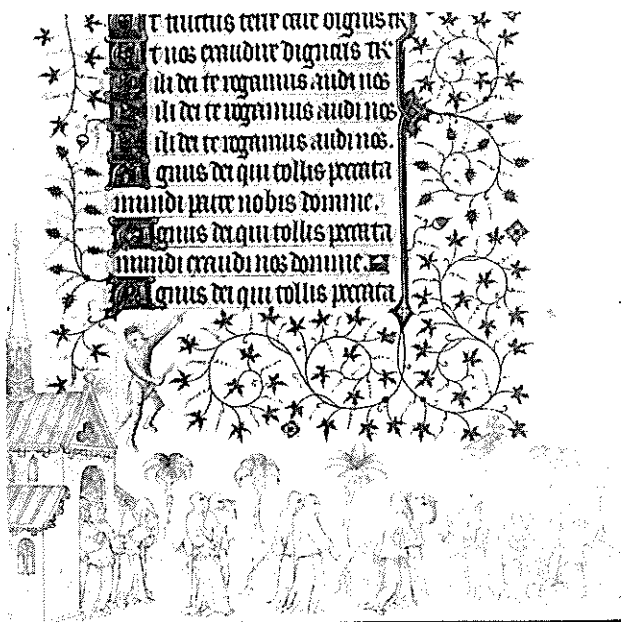 t fructus terre dare digneris
t nos exaudire digneris
ili dei te rogamus audi nos
ili dei te rogamus audi nos
ili dei te rogamus audi nos.
Agnus dei qui tollis peccata
mundi parce nobis domine.
Agnus dei qui tollis peccata
mundi exaudi nos domine.
Agnus dei qui tollis peccata